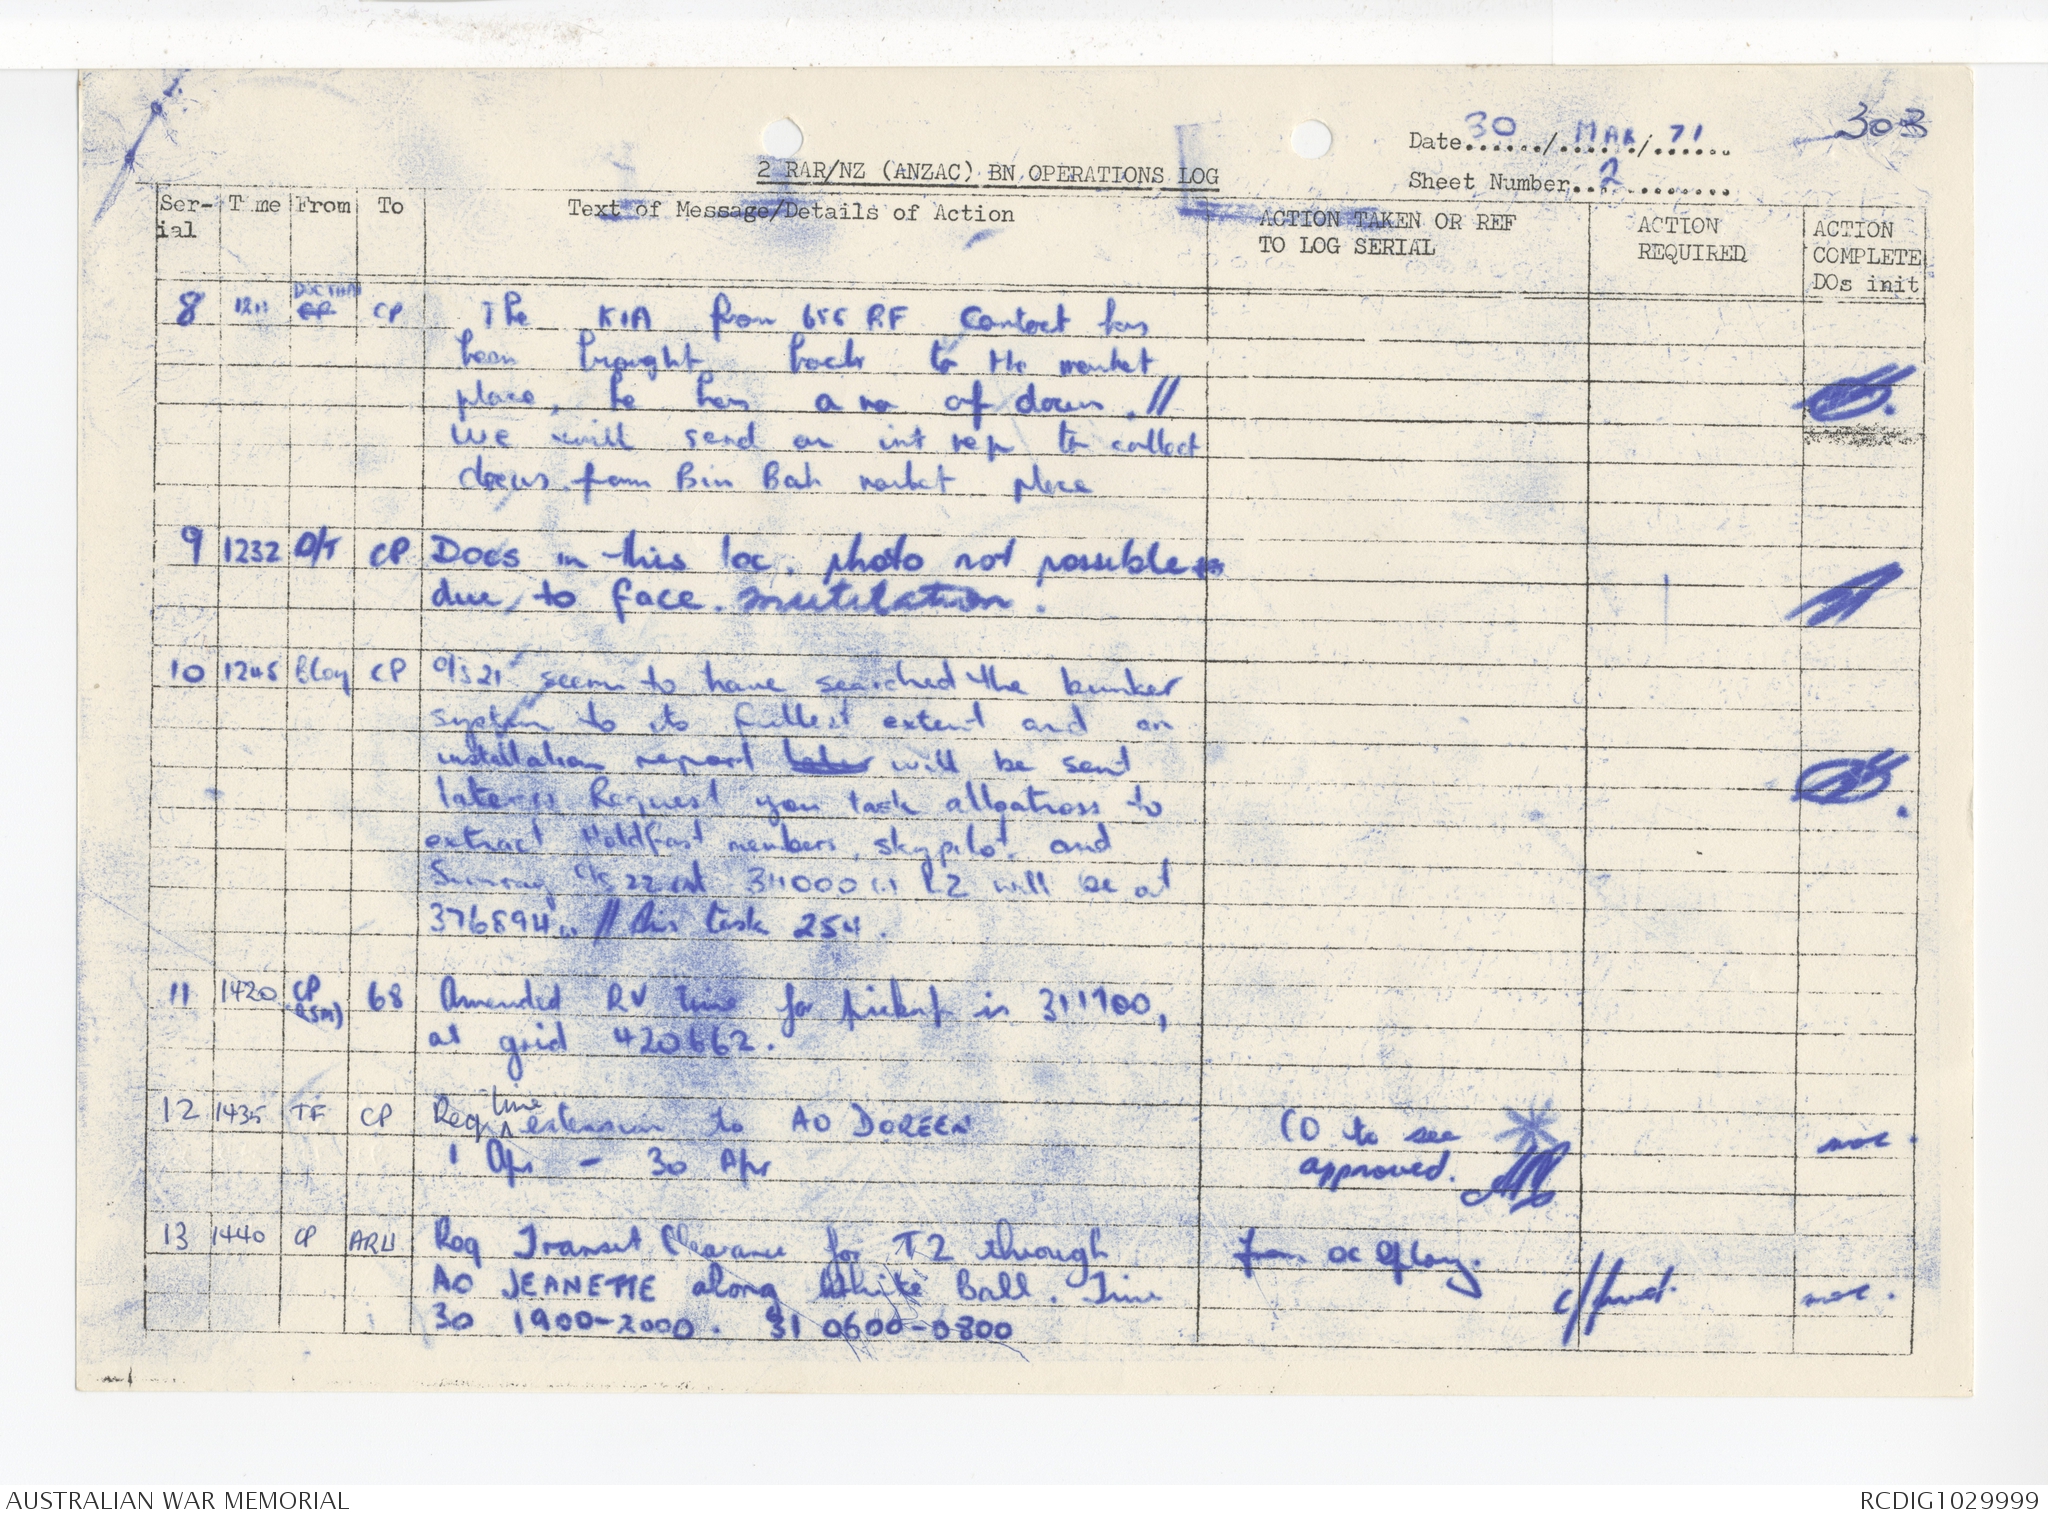 303
Date 30 / MAR / 71
2 RAR/NZ (ANZAC) BN OPERATIONS LOG
Sheet Number 2
Ser-ial Time From To Text of Message/Details of Action ACTION TAKEN OR REF TO LOG SERIAL ACTION REQUIRED ACTION COMPLETE DOs init
8 CP The KIA from 655 RF Contact has
been brought back to the market
place, he has a no of docus. //
We will send an int rep to collect
docus from Bin Bah market place
9 1232 D/T CP Docs in this loc. photo not possible
due to face mutilation.
10 1245 B Coy CP C/S 21 seem to have searched the bunker
system to its fullest extent and an
installation report later will be sent
later. Request you task albatross to
extract Holdfast members, skypilot and
Sunray C/S 22 at 311000 LZ will be at
376894 // this task 254.
11 1420 CP 68 Amended RV time for pickup is 311700,
at grid 420662.
12 1435 TF CP Req time extension to AO DOREEN CO to see
1 Apr - 30 Apr approved.
13 1440 CP ARU Req Transit Clearance for T2 through from OC
AO JEANETTE along White Ball. Time
30 1900-2000. 31 0600-0800
AUSTRALIAN WAR MEMORIAL
RCDIG1029999